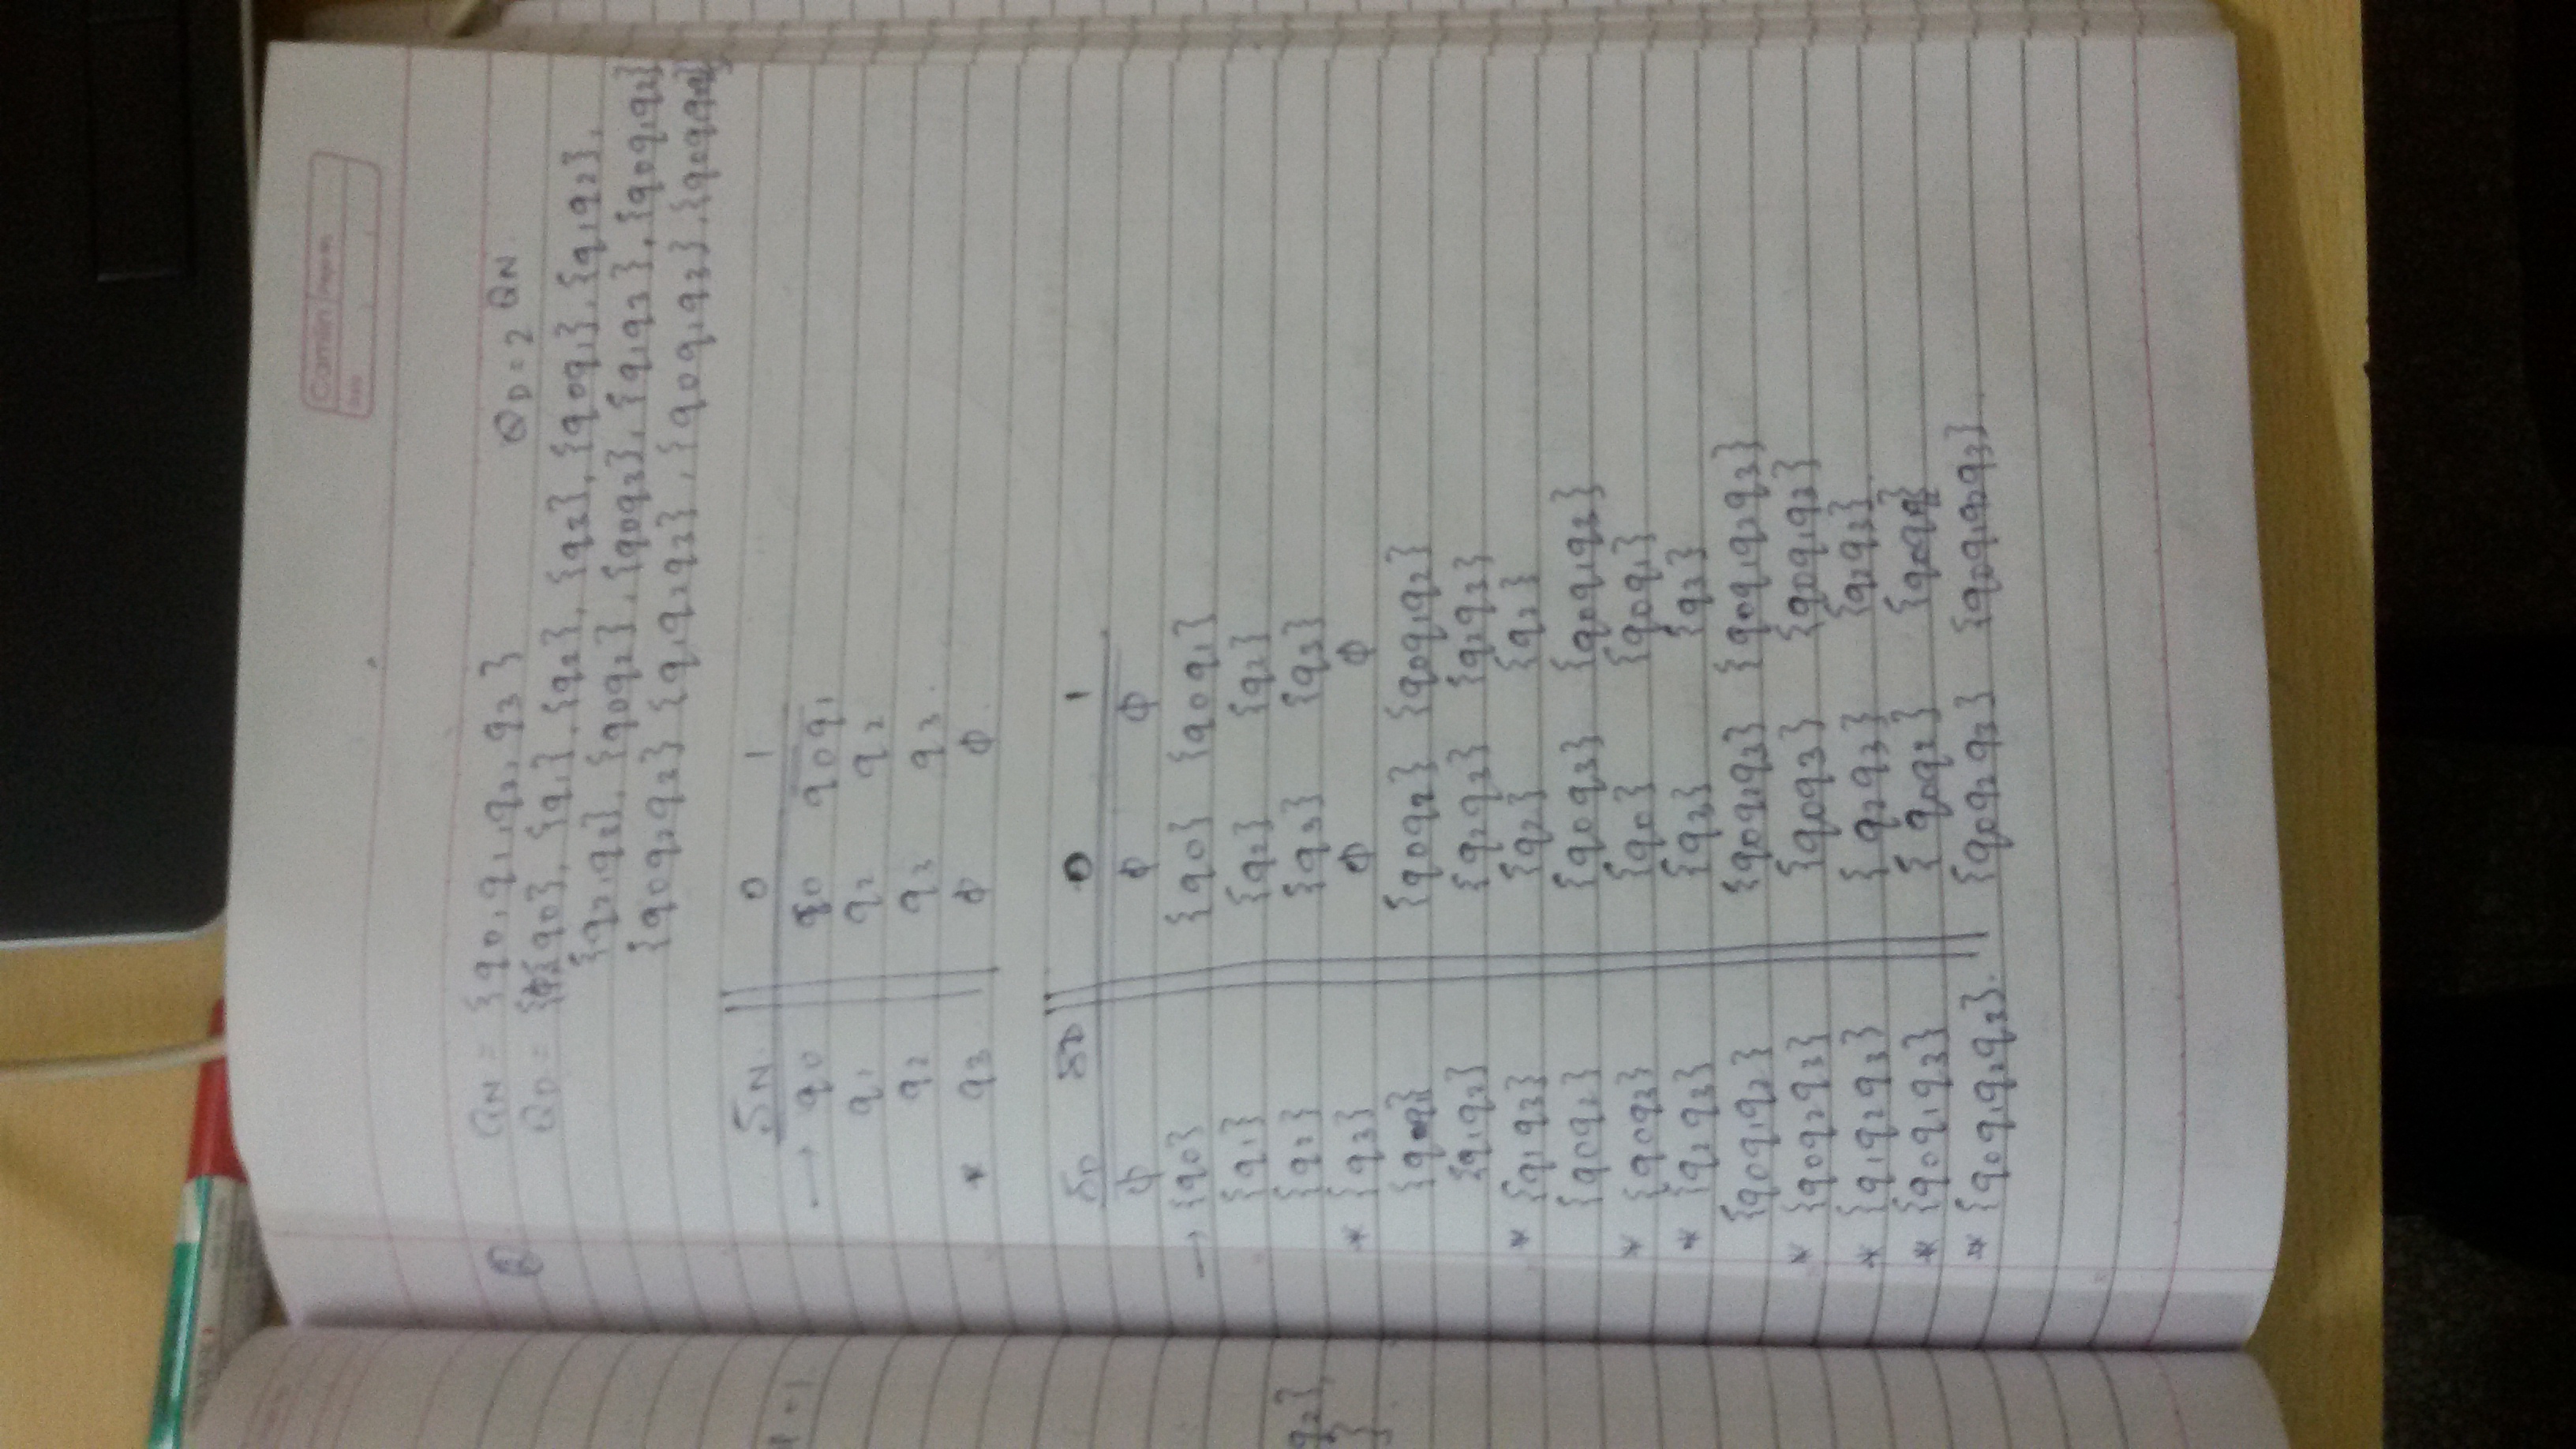 Camlin Page No.
Date / /
② QN = {q0, q1, q2, q3} QD = 2 QN
QD = {ϕ, {q0}, {q1}, {q2}, {q3}, {q0q1}, {q1q2},
{q2,q3}, {q0q2}, {q0q3}, {q1q3}, {q0q1q2}
{q0q2q3} {q1q2q3}, {q0q1q3},
δN 0 1
→ q0 q0 q0q1
q1 q2 q2
q2 q3 q3
* q3 ϕ ϕ
δD δD 0 1
ϕ ϕ ϕ
→ {q0} {q0} {q0q1}
{q1} {q2} {q2}
{q2} {q3} {q3}
* {q3} ϕ ϕ
{q0q1} {q0q2} {q0q1q2}
{q1q2} {q2q3} {q2q3}
* {q1q3} {q2} {q2}
{q0q2} {q0q3} {q0q1q3}
* {q0q3} {q0} {q0q1}
* {q2q3} {q3} {q3}
{q0q1q2} {q0q2q3} {q0q1q2q3}
* {q0q2q3} {q0q3} {q0q1q3}
* {q1q2q3} {q2q3} {q2q3}
* {q0q1q3} {q0q2}
* {q0q1q2q3} {q0q2q3} {q0q1q2q3}